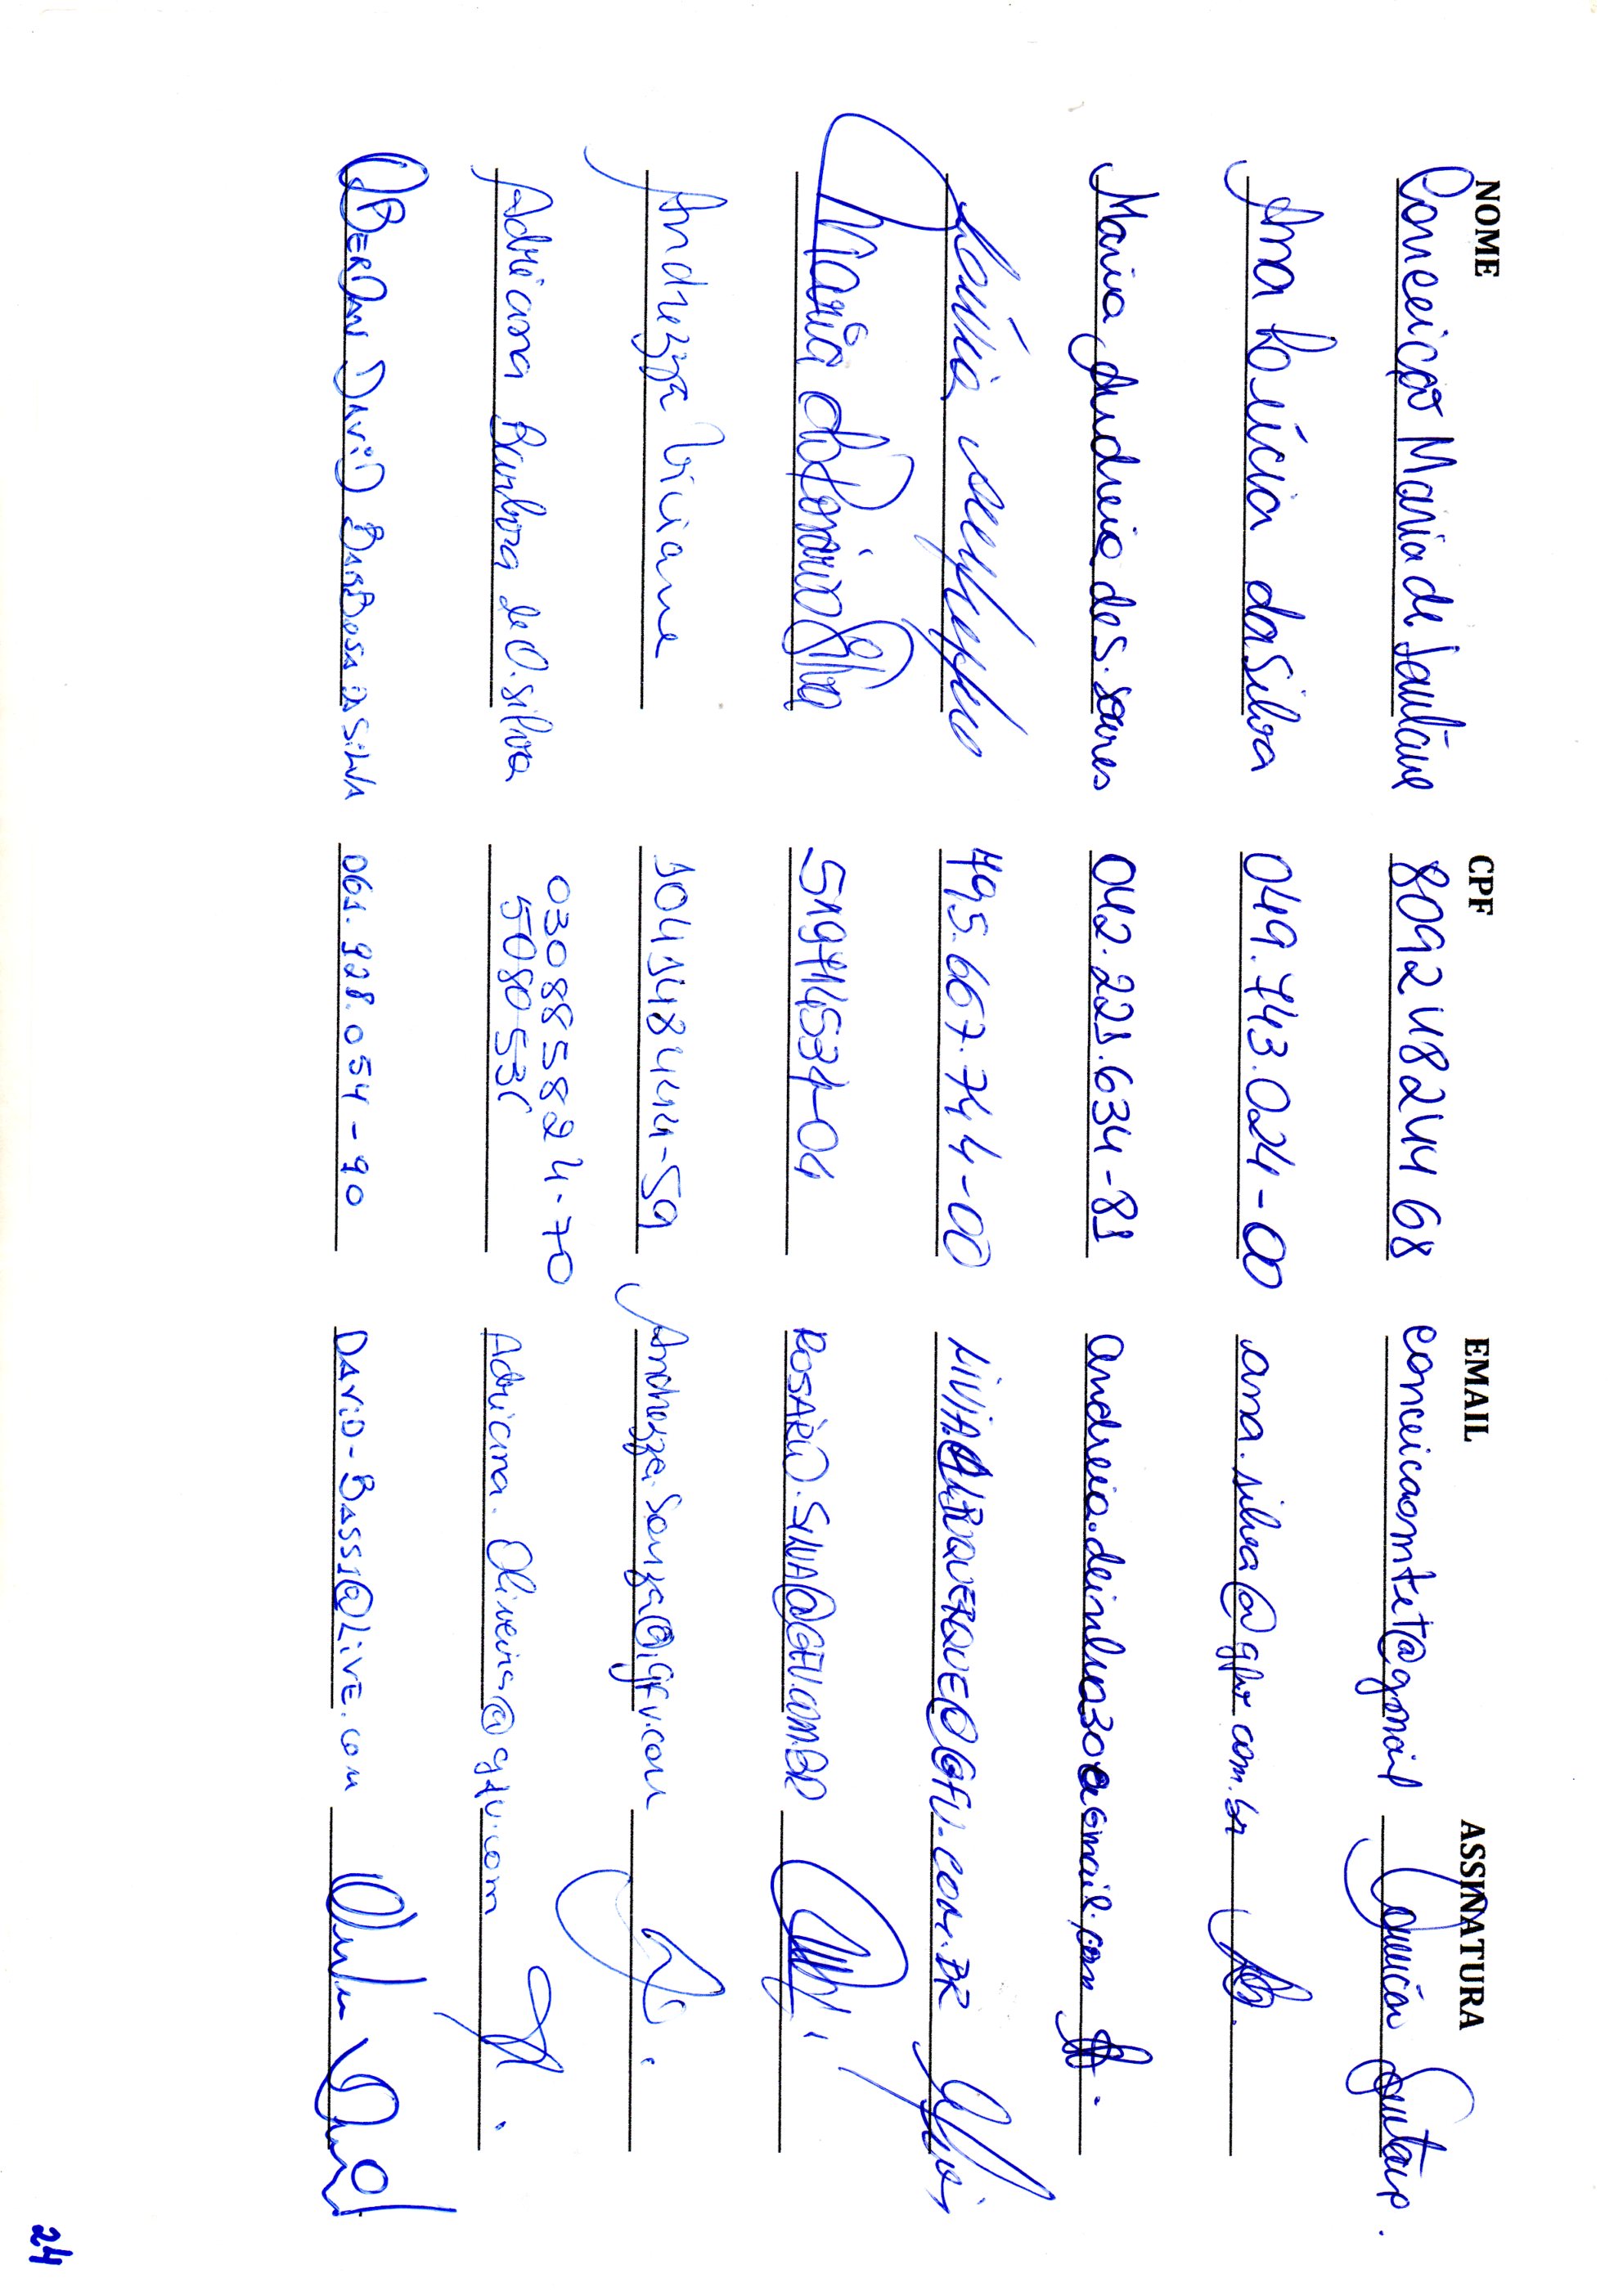 NOME CPF EMAIL ASSINATURA
Conceição Maria de Santana 8092482444 68 conceicaomtet@gmail Conceição Santana.
Ana Lúcia da Silva 049.743.024-00 ana.silva@gfv.com.br
Maria Andreia de S. Soares 042.221.634-81 andreia.deinha30@Gmail.com
Lívia 495.667.744-00 LIVIA.ALBUQUERQUE@GFV.COM.BR
Maria do Rosário Silva 519714534-04 ROSARIO.SILVA@GFV.COM.BR
Andrezza Viviane 104148444-59 Andrezza.Souza@gfv.com
Adriana Barbosa de O. Silva 030885824-70 Adriana.Oliveira@gfv.com
5080531
OBERDAN DAVID BARBOSA DA SILVA 061.928.054-90 DAVID-BASS1@LIVE.COM
24